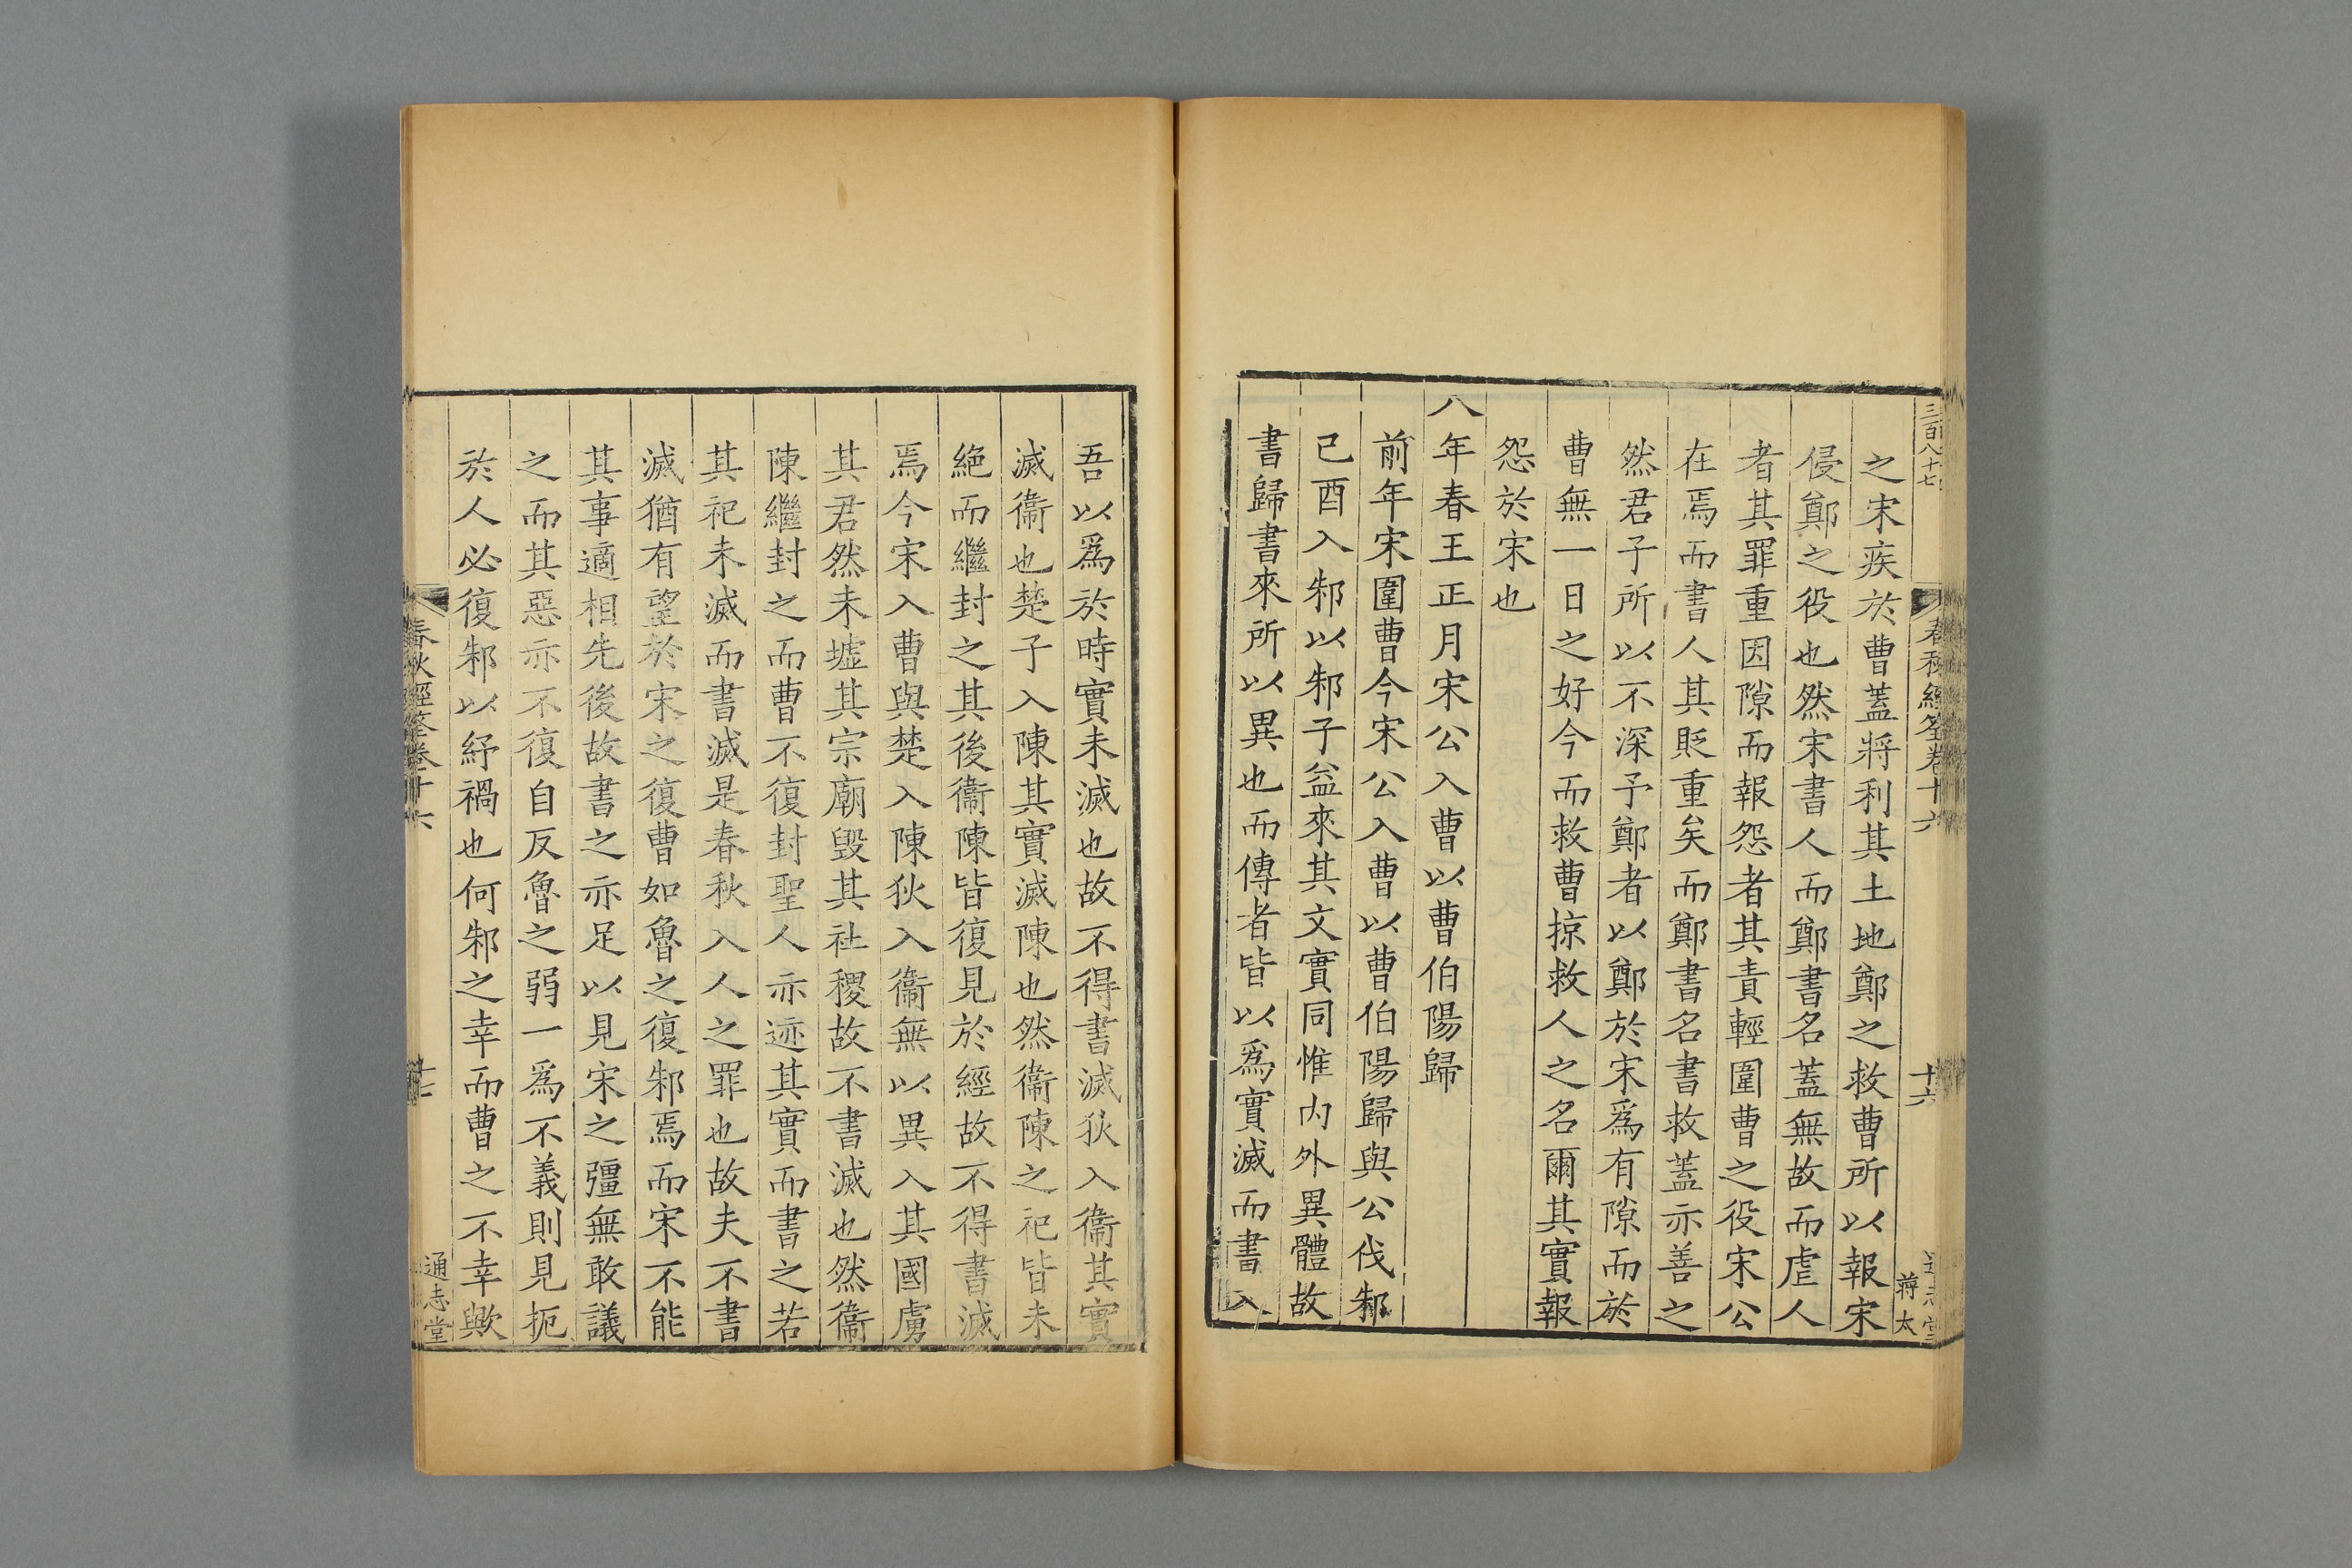 三百八十七
春秋經筌卷十六
十六
蔣太
之宋疾於曹蓋將利其土地鄭之救曹所以報宋
侵鄭之役也然宋書人而鄭書名蓋無故而虐人
者其罪重因隙而報怨者其責輕圍曹之役宋公
在焉而書人其貶重矣而鄭書名書救蓋亦善之
然君子所以不深予鄭者以鄭於宋爲有隙而於
曹無一日之好今而救曹掠救人之名爾其實報
怨於宋也
八年春王正月宋公入曹以曹伯陽歸
前年宋圍曹今宋公入曹以曹伯陽歸與公伐邾
己酉入邾以邾子益來其文實同惟內外異體故
書歸書來所以異也而傳者皆以爲實滅而書入
吾以爲於時實未滅也故不得書滅狄入衞其實
滅衞也楚子入陳其實滅陳也然衞陳之祀皆未
絕而繼封之其後衞陳皆復見於經故不得書滅
焉今宋入曹與楚入陳狄入衞無以異入其國虜
其君然未墟其宗廟毀其社稷故不書滅也然衞
陳繼封之而曹不復封聖人亦迹其實而書之若
其祀未滅而書滅是春秋入人之罪也故夫不書
滅猶有望於宋之復曹如魯之復邾焉而宋不能
其事適相先後故書之亦足以見宋之彊無敢議
之而其惡亦不復自反魯之弱一爲不義則見扼
於人必復邾以紓禍也何邾之幸而曹之不幸歟
春秋經筌卷十六
十七
通志堂